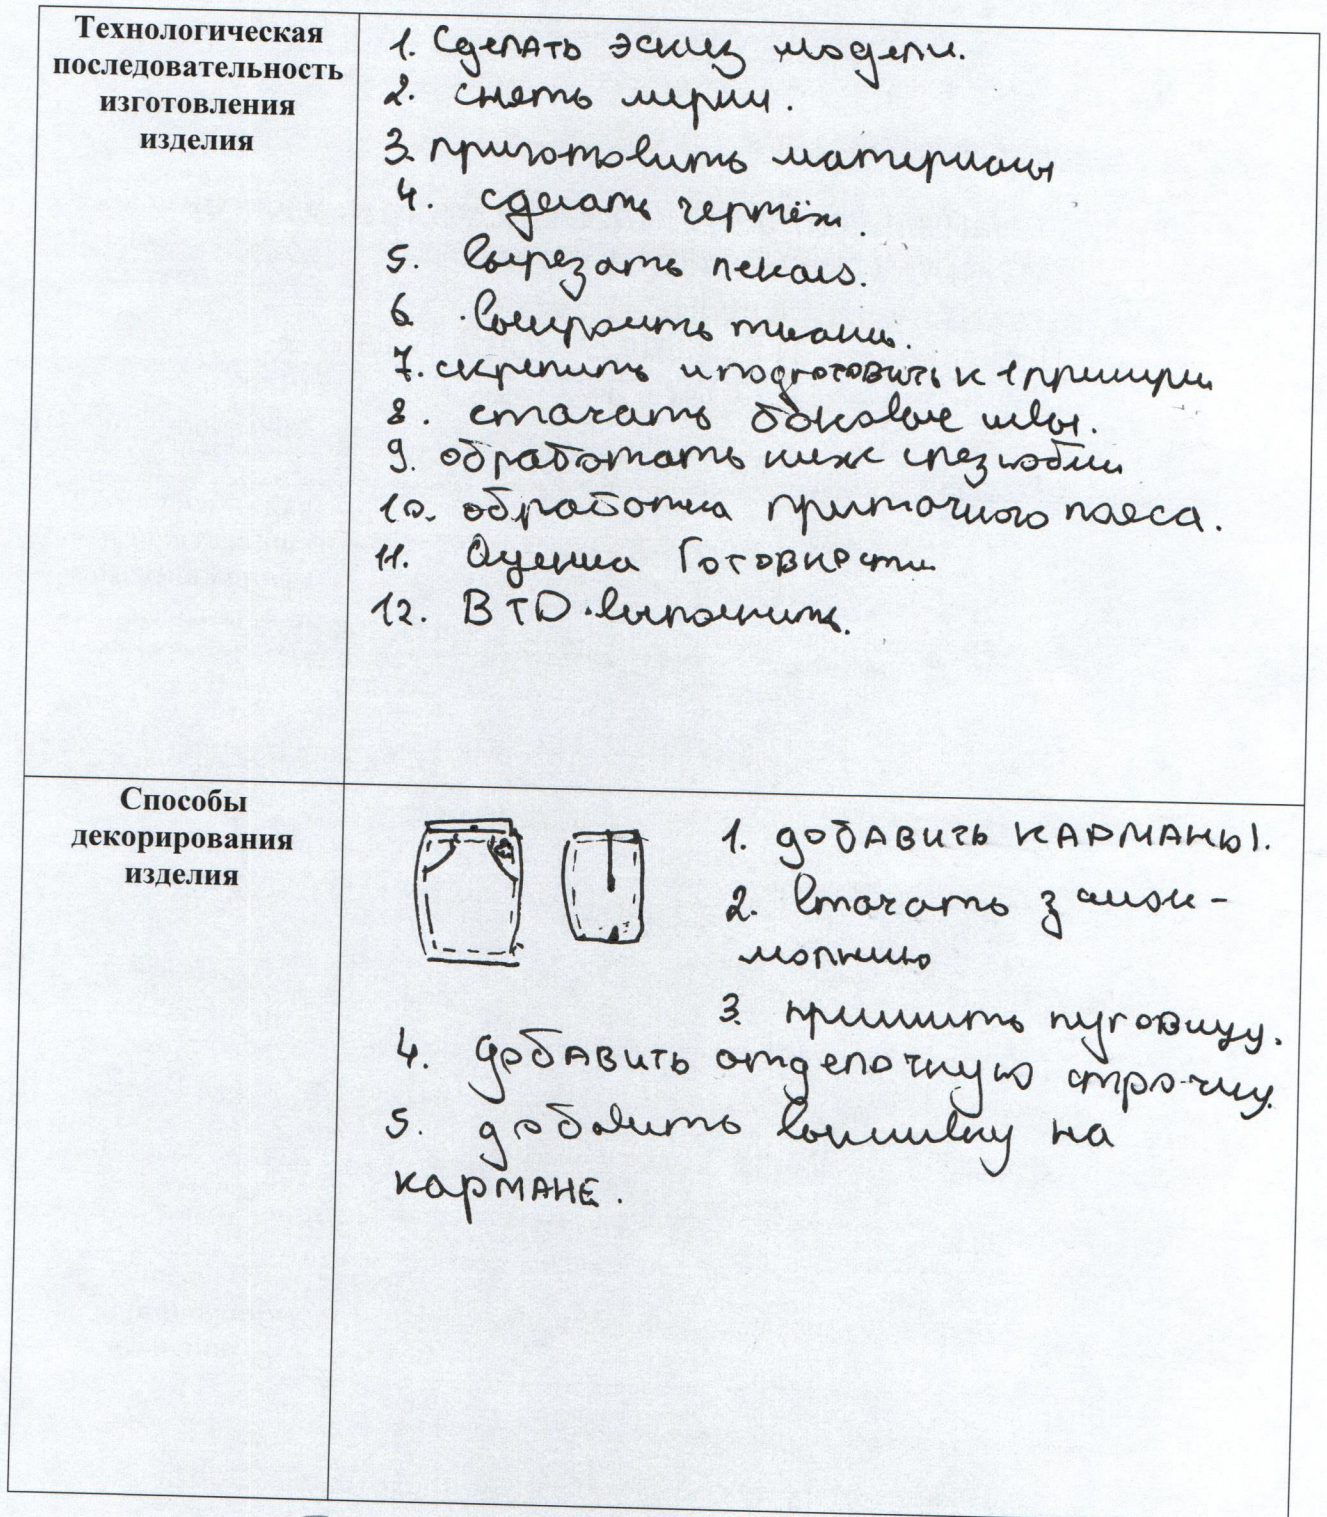 Технологическая
последовательность
изготовления
изделия
1. Сделать эскиз модели.
2. снять мерки.
3. приготовить материалы
4. сделать чертёж.
5. вырезать лекало.
6. выкроить ткань.
7. скрепить и подготовить к 1 примерки
8. стачать боковые швы.
9. обработать ниж срез юбки
10. обработка притачного пояса.
11. Оценка Готовности
12. ВТО выполнить.
Способы
декорирования
изделия
1. добавить карманы.
2. втачать замок-
молнию
3. пришить пуговицу.
4. добавить отделочную строчку.
5. добавить вышивку на
кармане.